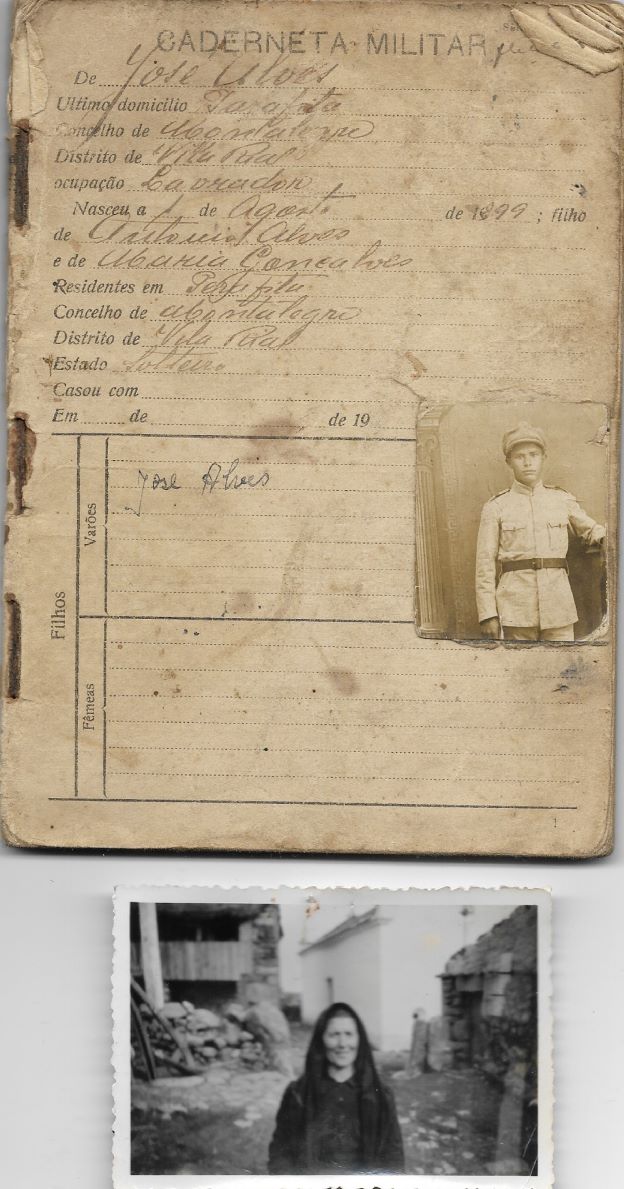 CADERNETA MILITAR
De José Alves
Ultimo domicilio Parafita
Concelho de Montalegre
Distrito de Vila Rial
ocupação Lavrador
Nasceu a 1 de Agosto de 1899 ; filho
de Antonio Alves
e de Maria Gonçalves
Residentes em Parafita
Concelho de Montalegre
Distrito de Vila Rial
Estado Solteiro
Casou com
Em de de 19
Filhos
Varões
José Alves
Fêmeas
1